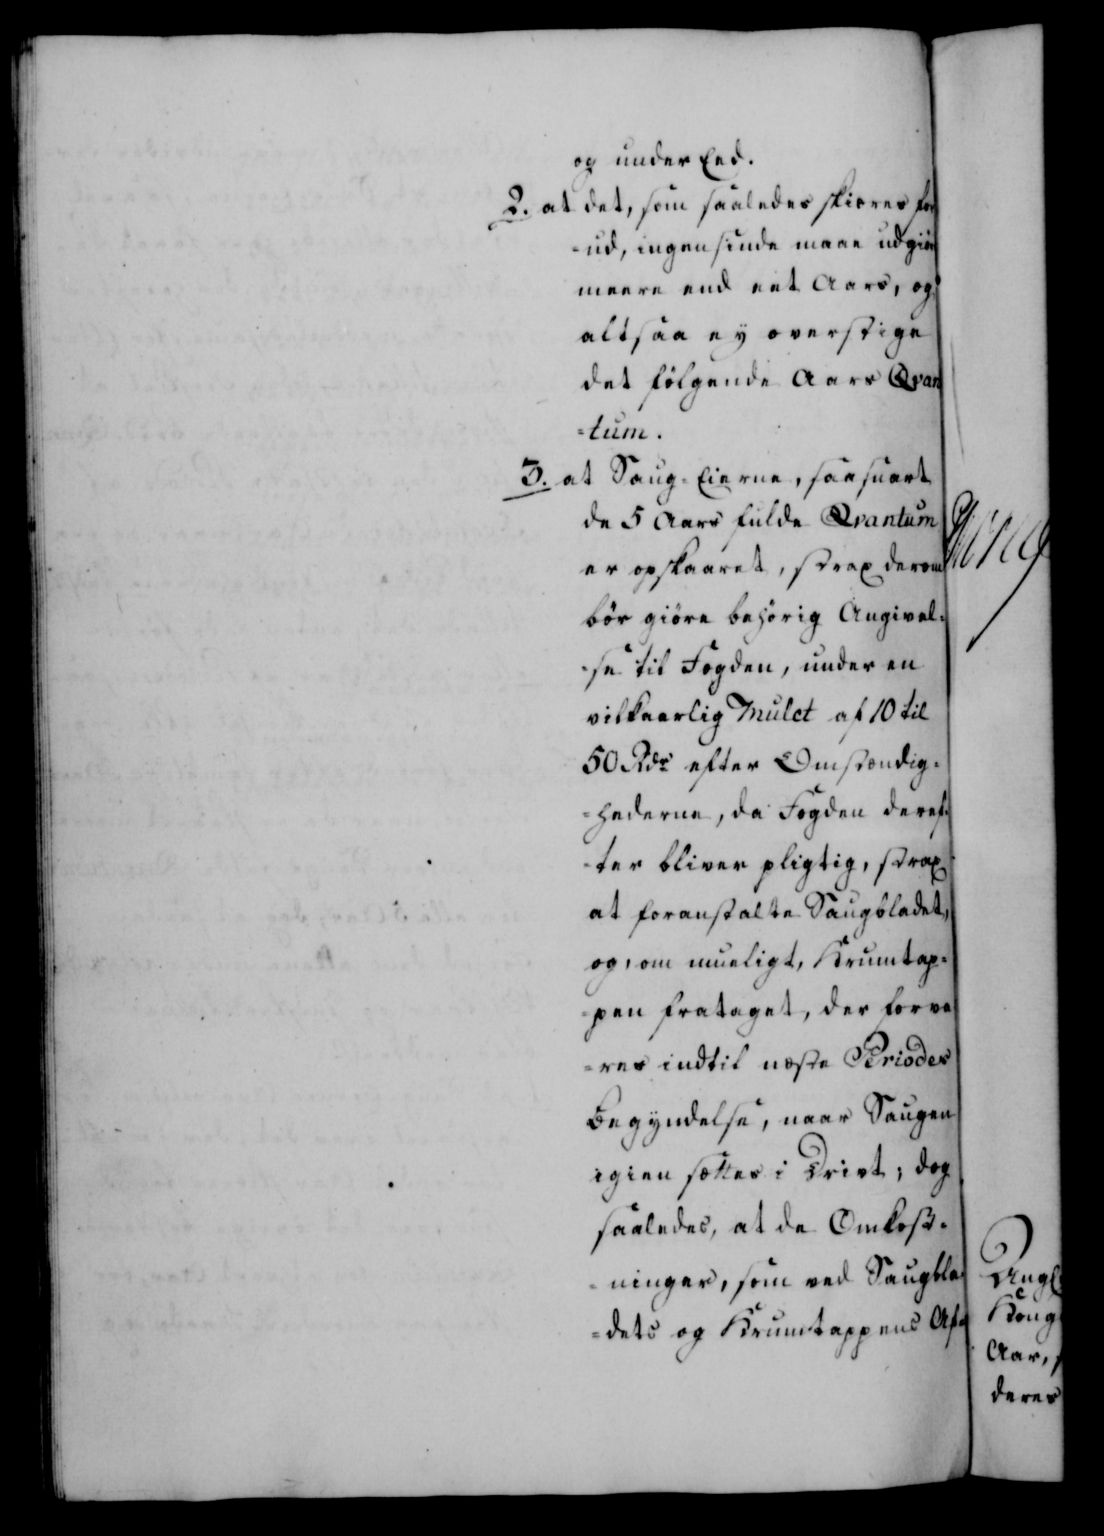 og under Eed.
2. at det, som saaledes skieres for
-ud, ingensinde maae udgiøre
meere end eet Aars, og
altsaa ey overstige
det følgende Aars Qvan
-tum.
3. at Saug-Eierne, saasnart
de 5 Aars fulde Qvantum
er opskaaret, strax derom
bør giøre behørig Angivel-
-se til Fogden, under en
vilkaarlig Mulct af 10 til
50 Rdr efter Omstændig-
-hederne, da Fogden deref-
-ter bliver pligtig, strax
at foranstalte Saugbladet,
og, om mueligt, Krumtap-
-pen frataget, der forva
-res indtil næste Periodes
Begyndelse, naar Saugen
igien sættes i Drivt; dog
saaledes, at de Omkost-
-ninger, som ved Saugbla-
-dets og Krumtappens Af-
Kong
Aar,
deres